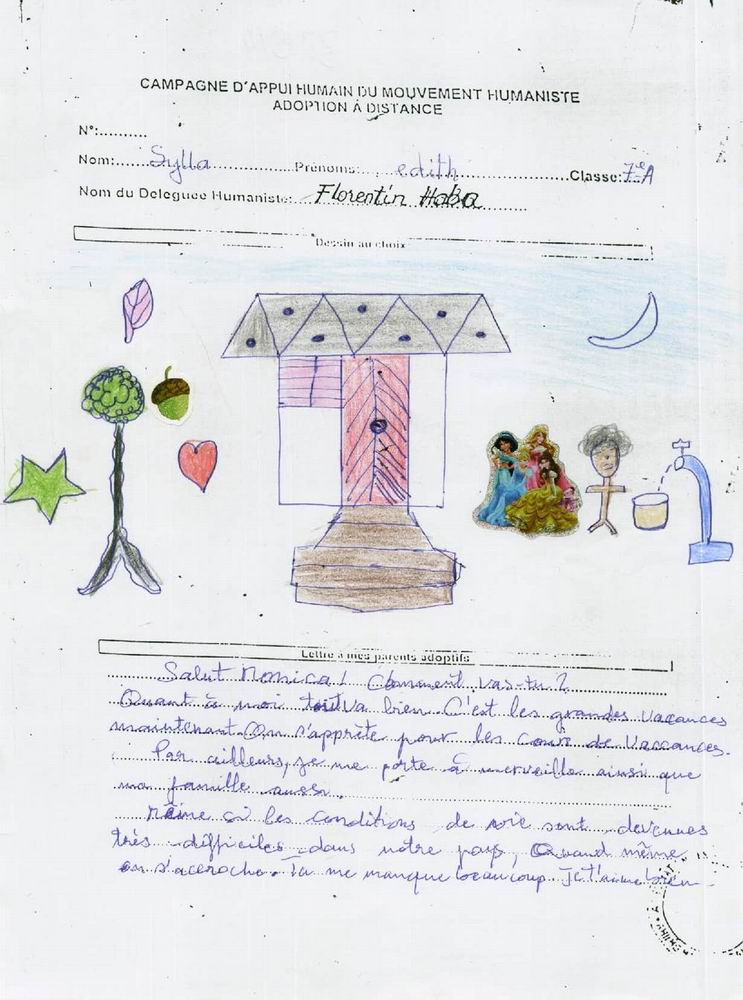 CAMPAGNE D'APPUI HUMAIN DU MOUVEMENT HUMANISTE
ADOPTION À DISTANCE
N°:..........
Nom:......Sylla......................Prénoms:......edith............................Classe:7eA
Nom du Deleguee Humaniste:....Florentin Haba..........
Dessin au choix
Lettre à mes parents adoptifs
Salut Monica! Comment vas-tu?
Quant à moi tout va bien. C'est les grandes vacances
maintenant. On s'apprête pour les cour de Vaccances.
Par ailleurs, je me porte à merveille ainsi que
ma famille aussi.
Même si les conditions de vie sont devenues
très difficiles dans notre pays, Quand même
on s'accroche. Tu me manque beaucoup Je t'aime bien